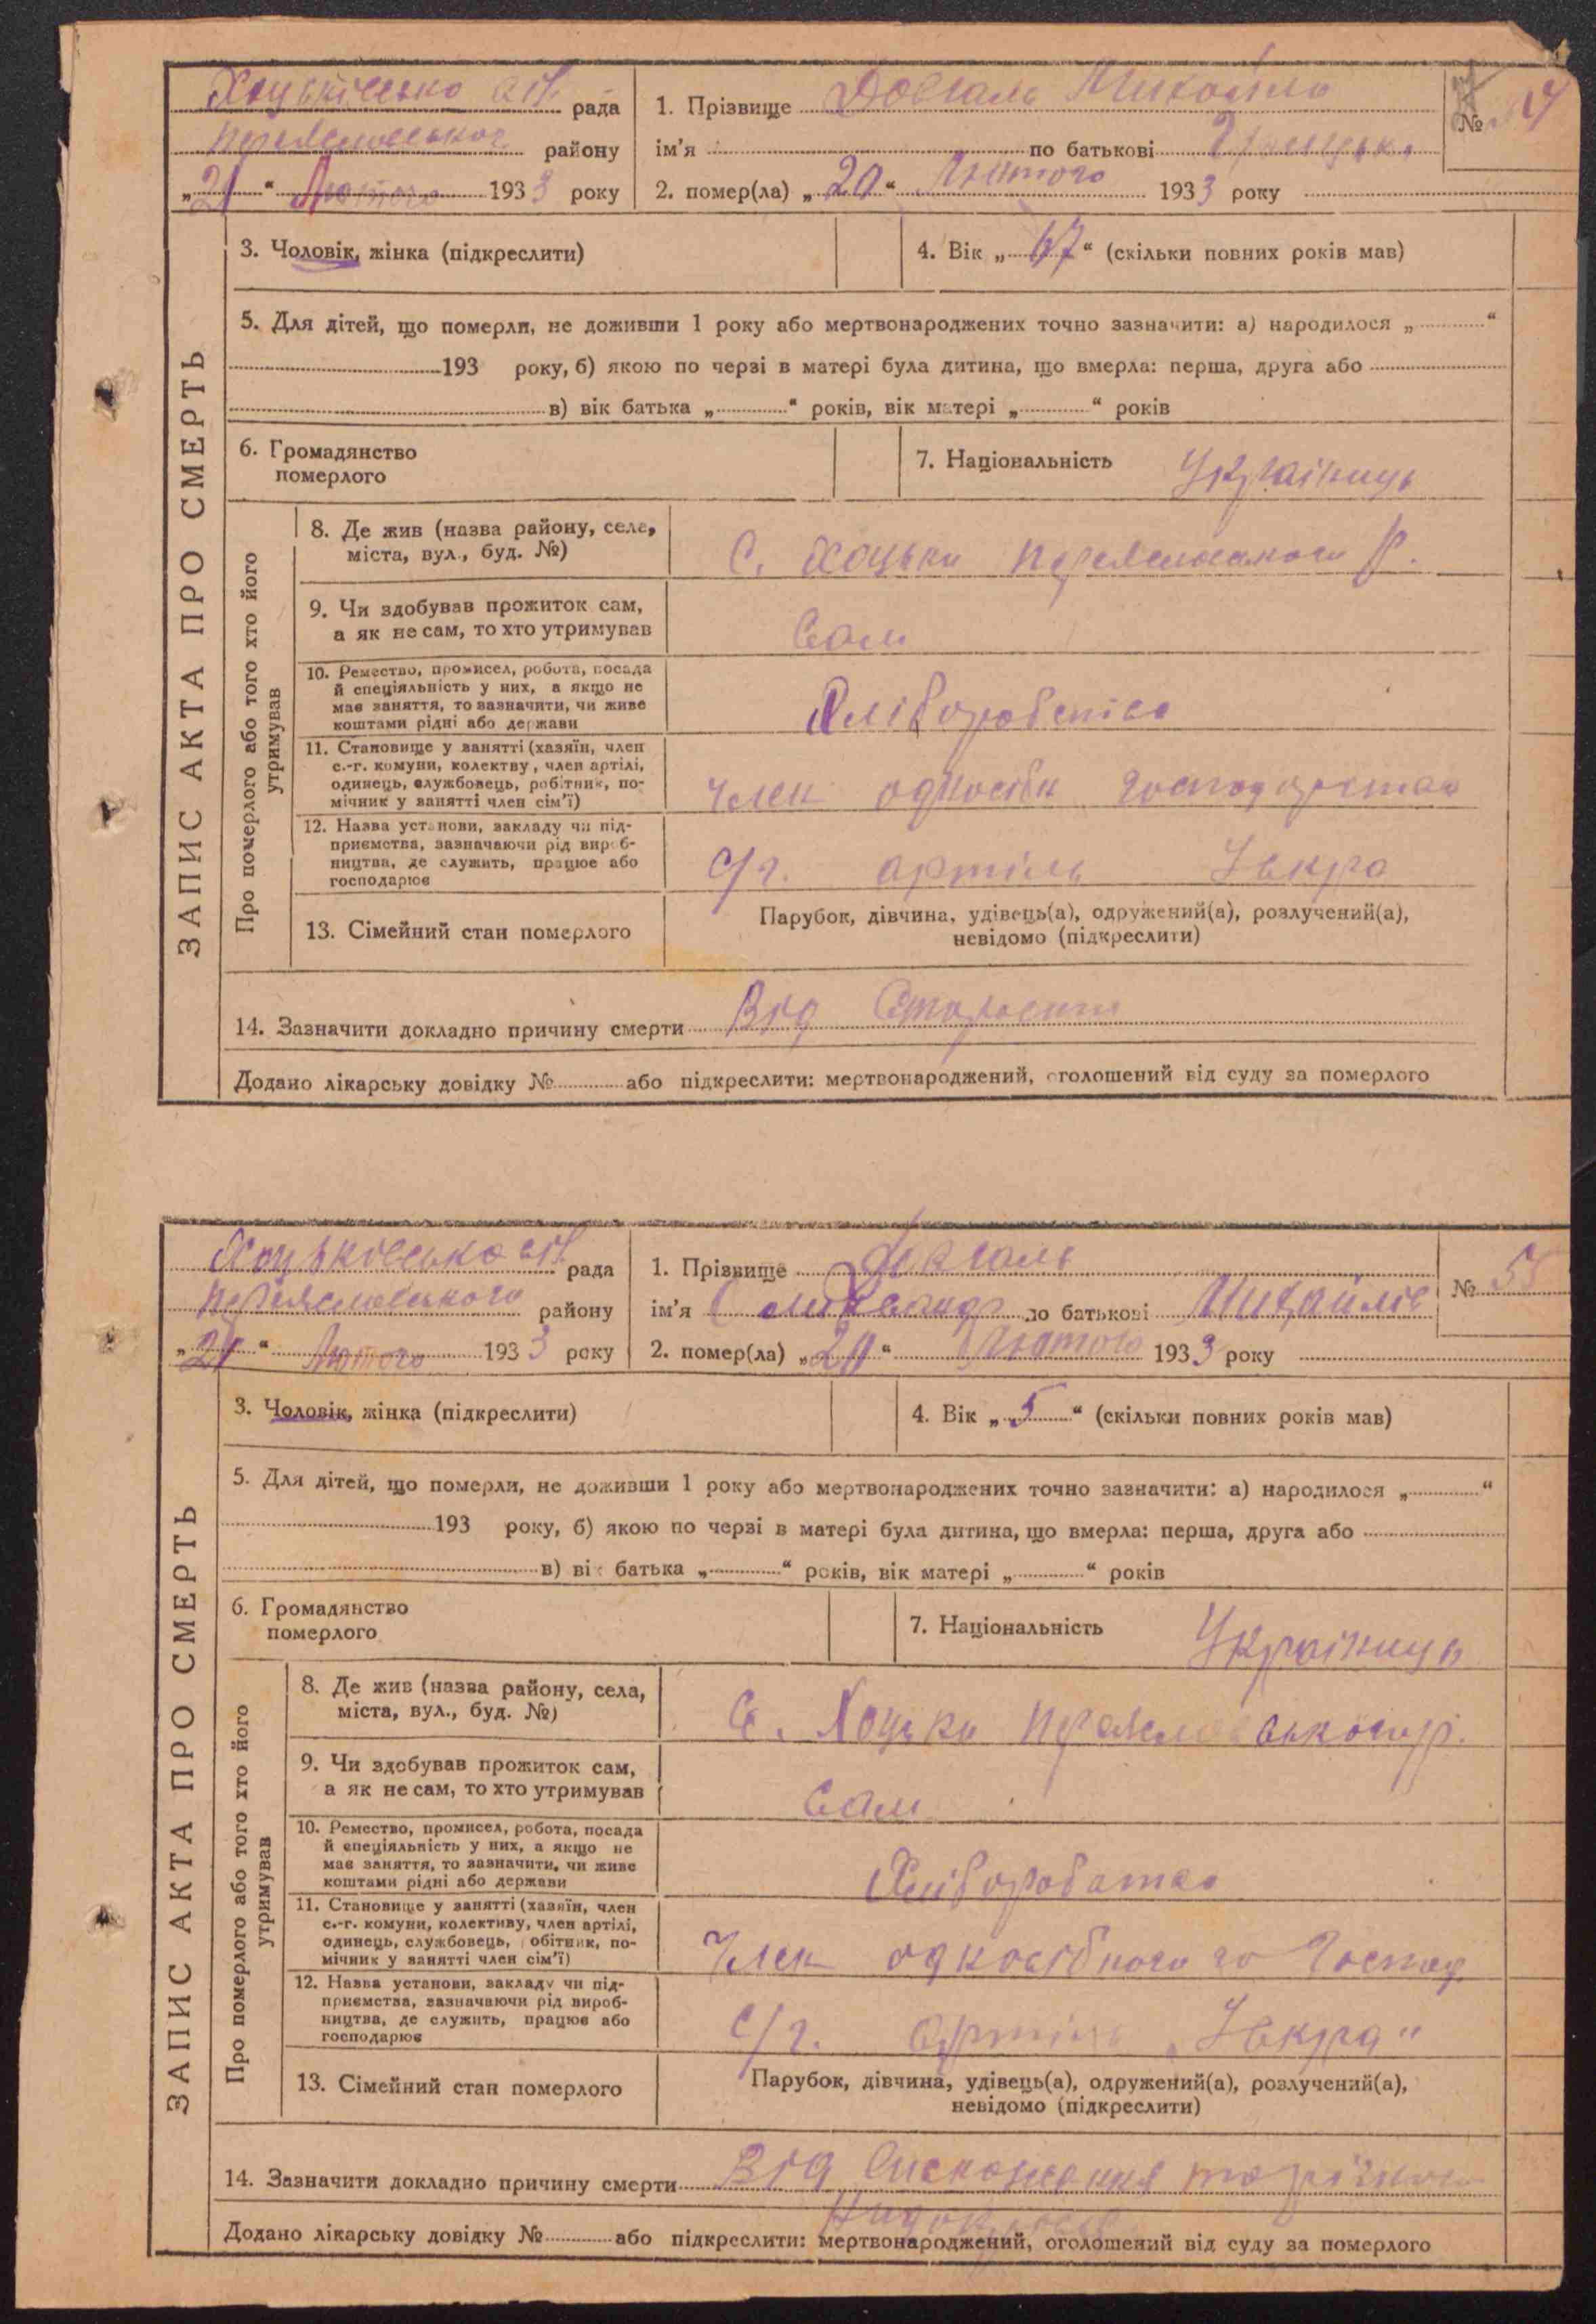 Хоцьківська с/р. рада
Переяславського району
„21“ Лютого 1933 року
1. Прізвище Довгаль Михайло
ім’я по батькові
2. помер(ла) „20“ Лютого 1933 року
№
ЗАПИС АКТА ПРО СМЕРТЬ
3. Чоловік, жінка (підкреслити)
4. Вік „67“ (скільки повних років мав)
5. Для дітей, що померли, не доживши 1 року або мертвонароджених точно зазначити: а) народилося „ “
193 року, б) якою по черзі в матері була дитина, що вмерла: перша, друга або
в) вік батька „ “ років, вік матері „ “ років
6. Громадянство
померлого
7. Національність Українець
Про померлого або того хто його
утримував
8. Де жив (назва району, села,
міста, вул., буд. №)
С. Хоцьки Переяславського р.
9. Чи здобував прожиток сам,
а як не сам, то хто утримував
Сам
10. Ремество, промисел, робота, посада
й спеціяльність у них, а якщо не
має заняття, то зазначити, чи живе
коштами рідні або держави
11. Становище у занятті (хазяїн, член
с.-г. комуни, колектву, член артілі,
одинець, службовець, робітник, по-
мічник у занятті член сім’ї)
Член господарства
12. Назва установи, закладу чи під-
приємства, зазначаючи рід вироб-
ництва, де служить, працює або
господарює
С/г. артіль Іскра
13. Сімейний стан померлого
Парубок, дівчина, удівець(а), одружений(а), розлучений(а),
невідомо (підкреслити)
14. Зазначити докладно причину смерти Від Старости
Додано лікарську довідку № або підкреслити: мертвонароджений, оголошений від суду за померлого
Хоцьківська с/р. рада
Переяславського району
„21“ Лютого 1933 року
1. Прізвище Довгаль
ім’я Олександр по батькові Михайлів
2. помер(ла) „20“ Лютого 1933 року
№ 55
ЗАПИС АКТА ПРО СМЕРТЬ
3. Чоловік, жінка (підкреслити)
4. Вік „5“ (скільки повних років мав)
5. Для дітей, що померли, не доживши 1 року або мертвонароджених точно зазначити: а) народилося „ “
193 року, б) якою по черзі в матері була дитина, що вмерла: перша, друга або
в) вік батька „ “ років, вік матері „ “ років
6. Громадянство
померлого
7. Національність Українець
Про померлого або того хто його
утримував
8. Де жив (назва району, села,
міста, вул., буд. №)
С. Хоцьки Переяславського р.
9. Чи здобував прожиток сам,
а як не сам, то хто утримував
Сам
10. Ремество, промисел, робота, посада
й спеціяльність у них, а якщо не
має заняття, то зазначити, чи живе
коштами рідні або держави
11. Становище у занятті (хазяїн, член
с.-г. комуни, колективу, член артілі,
одинець, службовець, робітник, по-
мічник у занятті член сім’ї)
Член одноосібного го Господ.
12. Назва установи, закладу чи під-
приємства, зазначаючи рід вироб-
ництва, де служить, працює або
господарює
С/г. артіль „Іскра“
13. Сімейний стан померлого
Парубок, дівчина, удівець(а), одружений(а), розлучений(а),
невідомо (підкреслити)
14. Зазначити докладно причину смерти Від
Додано лікарську довідку № або підкреслити: мертвонароджений, оголошений від суду за померлого